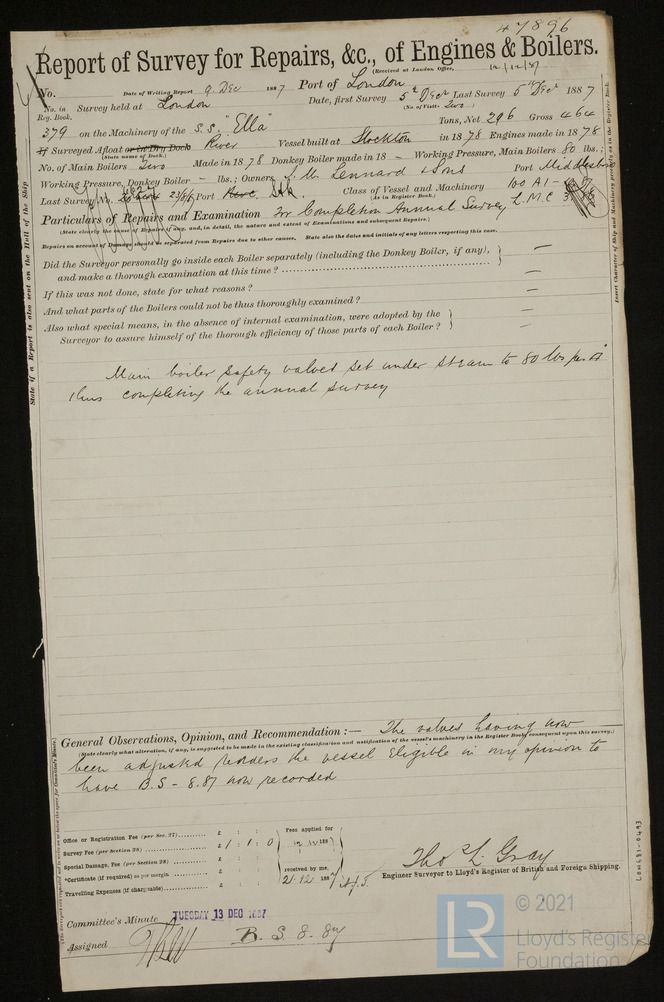 47896
Report of Survey for Repairs, &c., of Engines & Boilers.
(Received at London Office,
No. Date of Writing Report 9. Dec 1887 Port of London
No. in Reg. Book. Survey held at London Date, first Survey 5th Decr Last Survey 5th Decr 1887
(No. of Visits Two)
379 on the Machinery of the S.S. "Ella" Tons, Net 296 Gross 464
If Surveyed Afloat or in Dry Dock River Vessel built at Stockton in 1878 Engines made in 1878
(State name of Dock.)
No. of Main Boilers Two Made in 1878 Donkey Boiler made in 18 – Working Pressure, Main Boilers 80 lbs.;
Working Pressure, Donkey Boiler – lbs.; Owners Lennard & Sons Port Middlesbro
Last Survey No. 23/8/87 Port Class of Vessel and Machinery 100 A1 - L.M.C
(As in Register Book.)
Particulars of Repairs and Examination For Completion Annual Survey
(State clearly the cause of Repairs if any, and, in detail, the nature and extent of Examinations and subsequent Repairs.)
Repairs on account of Damage should be separated from Repairs due to other causes. State also the dates and initials of any letters respecting this case.
Did the Surveyor personally go inside each Boiler separately (including the Donkey Boiler, if any), —
and make a thorough examination at this time?
If this was not done, state for what reasons? —
And what parts of the Boilers could not be thus thoroughly examined? —
Also what special means, in the absence of internal examination, were adopted by the —
Surveyor to assure himself of the thorough efficiency of those parts of each Boiler?
Main boiler safety valves set under steam to 80 lbs per □"
thus completing the annual survey
General Observations, Opinion, and Recommendation :— The valves having now
(State clearly what alteration, if any, is suggested to be made in the existing classification and notification of the vessel's machinery in the Register Book consequent upon this survey.)
been adjusted renders the vessel eligible in my opinion to
have B.S - 8.87 now recorded
Office or Registration Fee (per Sec. 27) £ : : Fees applied for
Survey Fee (per Section 28) £ 1 : 1 : 0 12 12 1887
Special Damage, Fee (per Section 28) £ : :
*Certificate (if required) as per margin £ : : received by me,
Travelling Expenses (if chargeable) £ : : 21.12.1887
Thos L. Gray
Engineer Surveyor to Lloyd's Register of British and Foreign Shipping.
Committee's Minute TUESDAY 13 DEC 1887
Assigned B.S. 8.87
State if a Report is also sent on the Hull of the Ship
Insert Character of Ship and Machinery precisely as in the Register Book.
LON681-0493
© 2021
LR
Lloyd's Register
Foundation